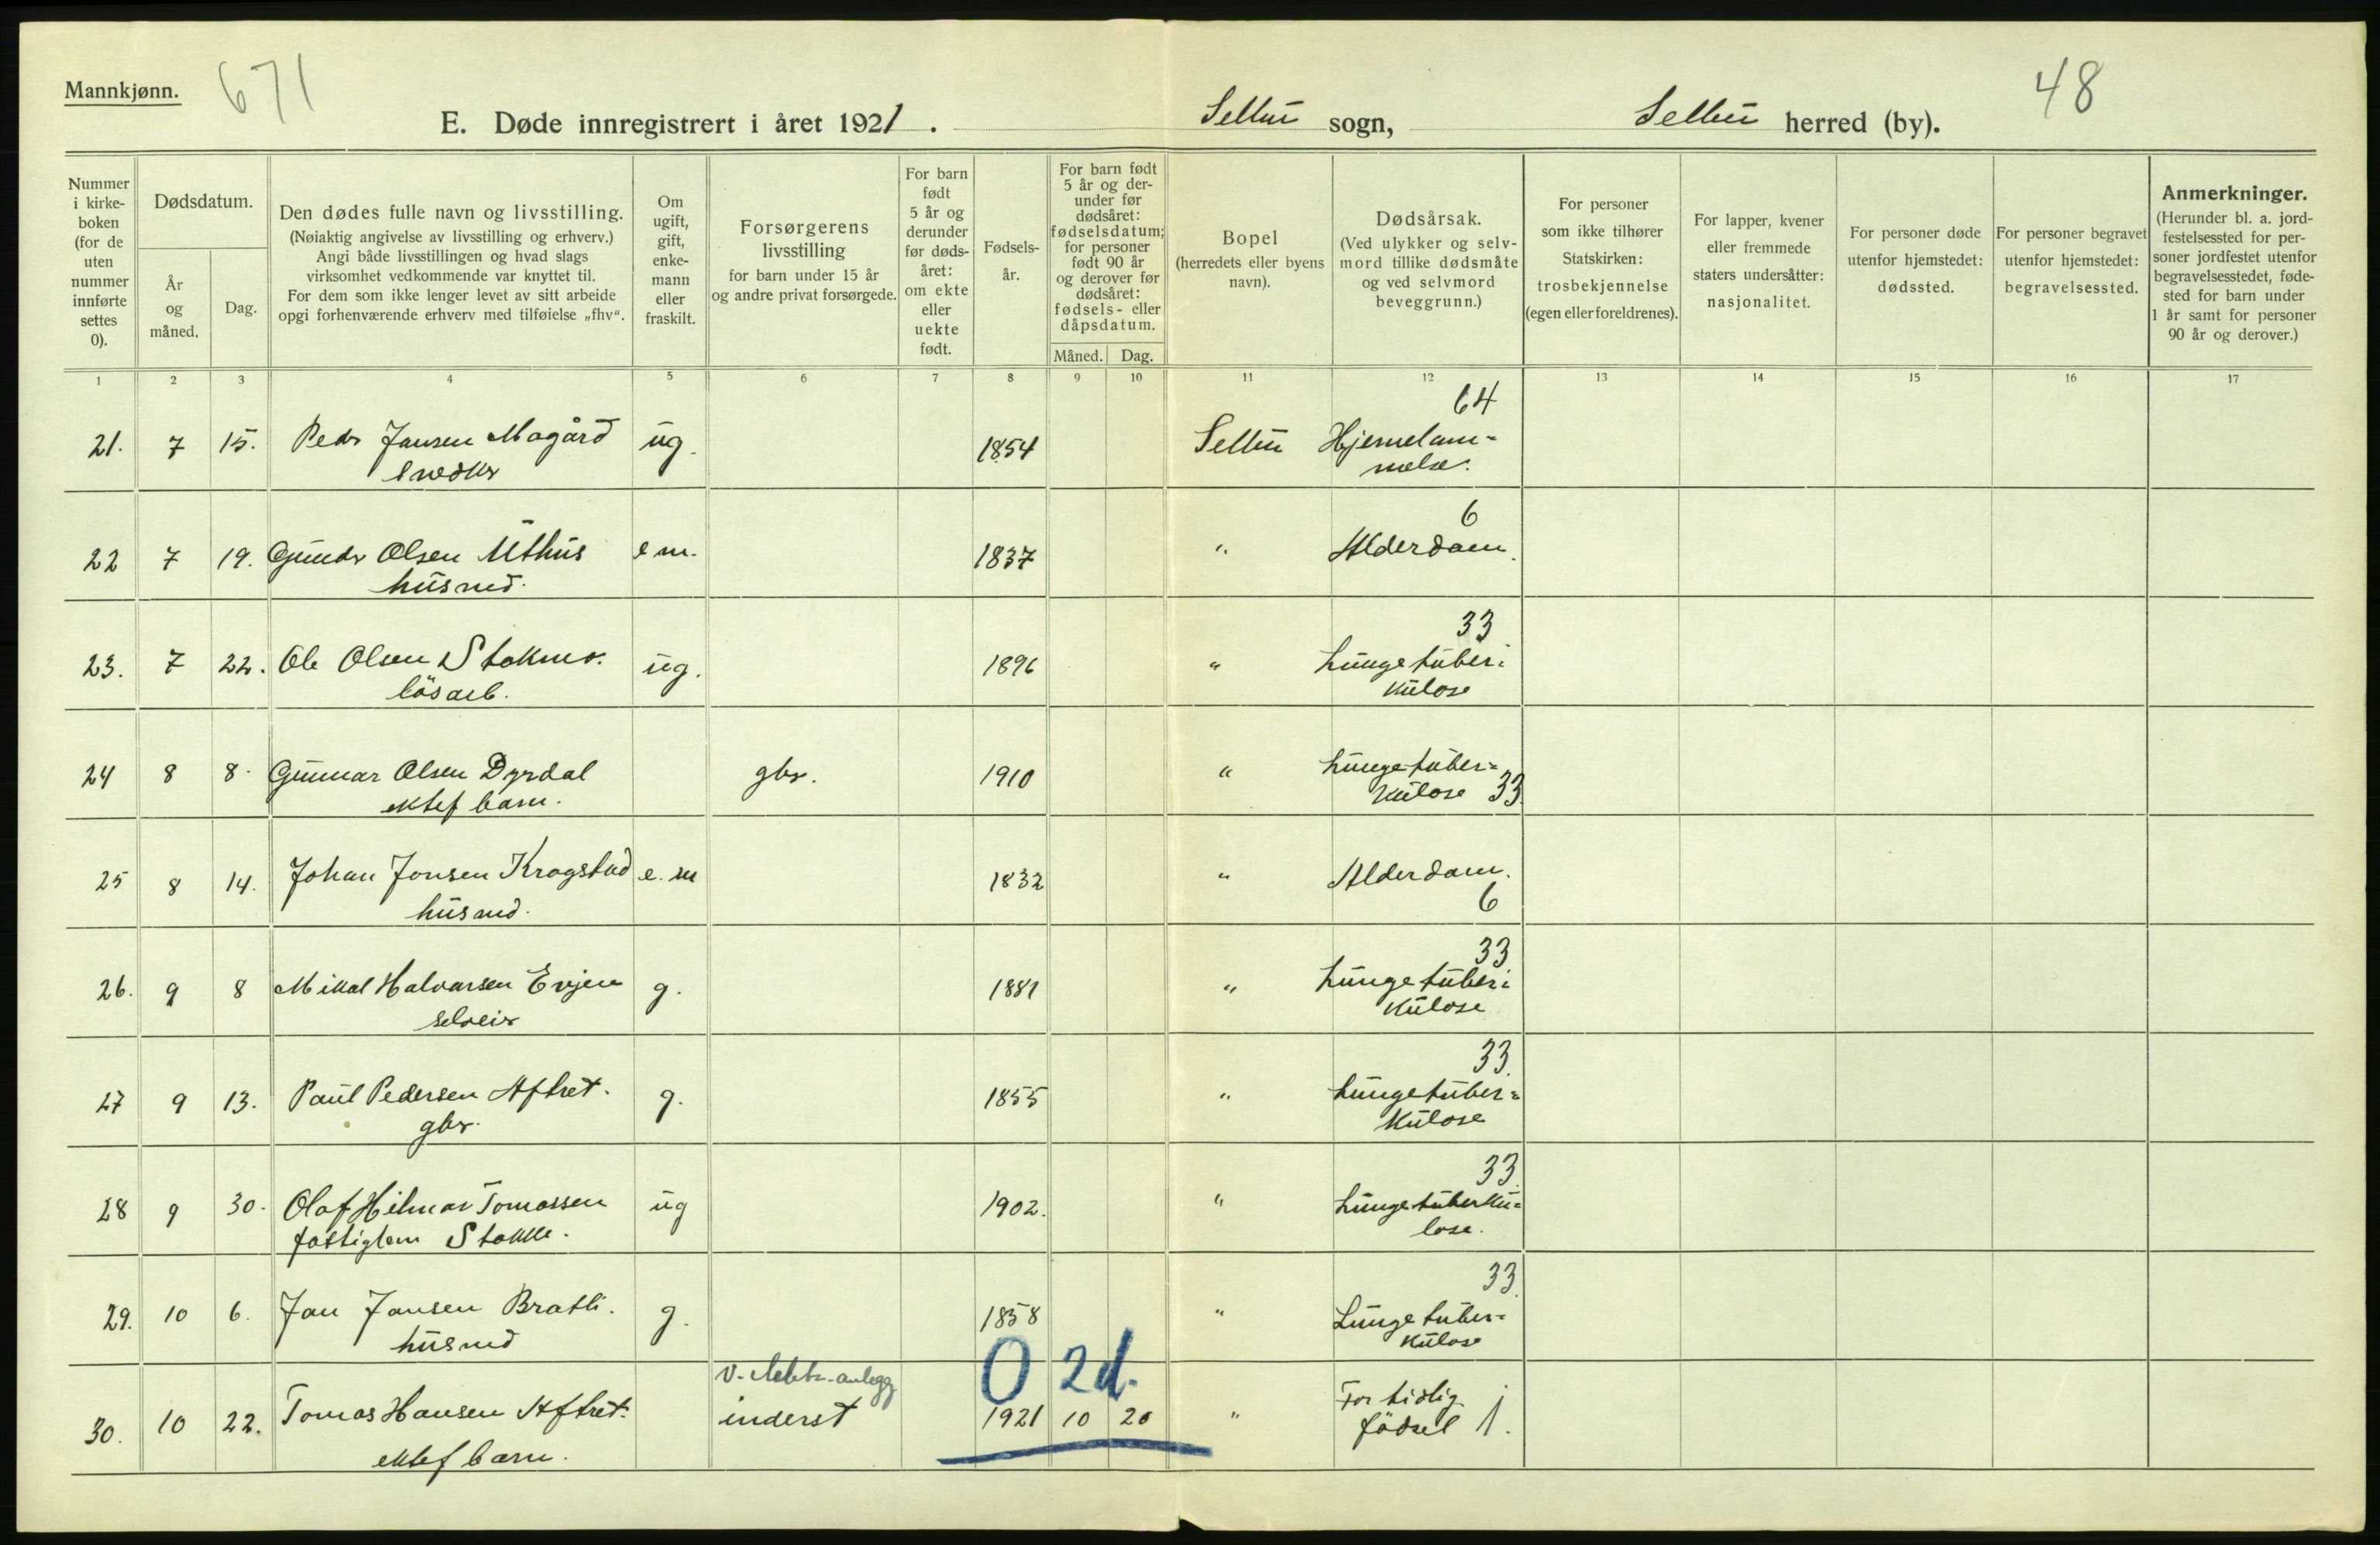 Mannkjønn.
671
48
E. Døde innregistrert i året 1921. Selbu sogn, Selbu herred (by).
Nummer i kirke-boken (for de uten nummer innførte settes 0).
Dødsdatum.
År og måned.
Dag.
Den dødes fulle navn og livsstilling.
(Nøiaktig angivelse av livsstilling og erhverv.)
Angi både livsstillingen og hvad slags
virksomhet vedkommende var knyttet til.
For dem som ikke lenger levet av sitt arbeide
opgi forhenværende erhverv med tilføielse „fhv“.
Om ugift, gift, enke-mann eller fraskilt.
Forsørgerens
livsstilling
for barn under 15 år
og andre privat forsørgede.
For barn født 5 år og derunder før døds-året: om ekte eller uekte født.
Fødsels-år.
For barn født 5 år og der-under før dødsåret: fødselsdatum; for personer født 90 år og derover før dødsåret: fødsels- eller dåpsdatum.
Måned.
Dag.
Bopel
(herredets eller byens
navn).
Dødsårsak.
(Ved ulykker og selv-
mord tillike dødsmåte
og ved selvmord
beveggrunn.)
For personer
som ikke tilhører
Statskirken:
trosbekjennelse
(egen eller foreldrenes).
For lapper, kvener
eller fremmede
staters undersåtter:
nasjonalitet.
For personer døde
utenfor hjemstedet:
dødssted.
For personer begravet
utenfor hjemstedet:
begravelsessted.
Anmerkninger.
(Herunder bl. a. jord-
festelsessted for per-
soner jordfestet utenfor
begravelsesstedet, føde-
sted for barn under
1 år samt for personer
90 år og derover.)
1 2 3 4 5 6 7 8 9 10 11 12 13 14 15 16 17
64
21. 7 15. Peder Jansen Mogård ug. 1854 Selbu Hjernelam-
melse.
6
22 7 19. Gunder Olsen Uthus e m. 1837 " Alderdom.
husmd.
33
23. 7 22. Ole Olsen Stokmo. ug. 1896 " Lungetuber=
løsarb. kulose
24 8 8. Gunnar Olsen Dyrdal gbr. 1910 " Lungetuber=
ektef barn. kulose 33
25 8 14. Johan Jonsen Krogstad e. m 1832 " Alderdom.
husmd. 6
33
26. 9 8 Mikal Halvarsen Evjen g. 1881 " Lungetuber=
selveier kulose
33.
27 9 13. Paul Pedersen Aftret. g. 1855 " Lungetuber=
gbr. kulose
33.
28 9 30. Olaf Hilmar Tomassen ug 1902. " Lungetuberku=
fattiglem Stokke. lose.
33.
29. 10 6. Jon Jonsen Bratli. g. 1858 " Lungetuber=
husmd kulose
v. -anlegg 0 2d.
30. 10 22. Tomas Hansen Aftret. inderst 1921 10 20 " For tidlig
ektef barn. fødsel 1.